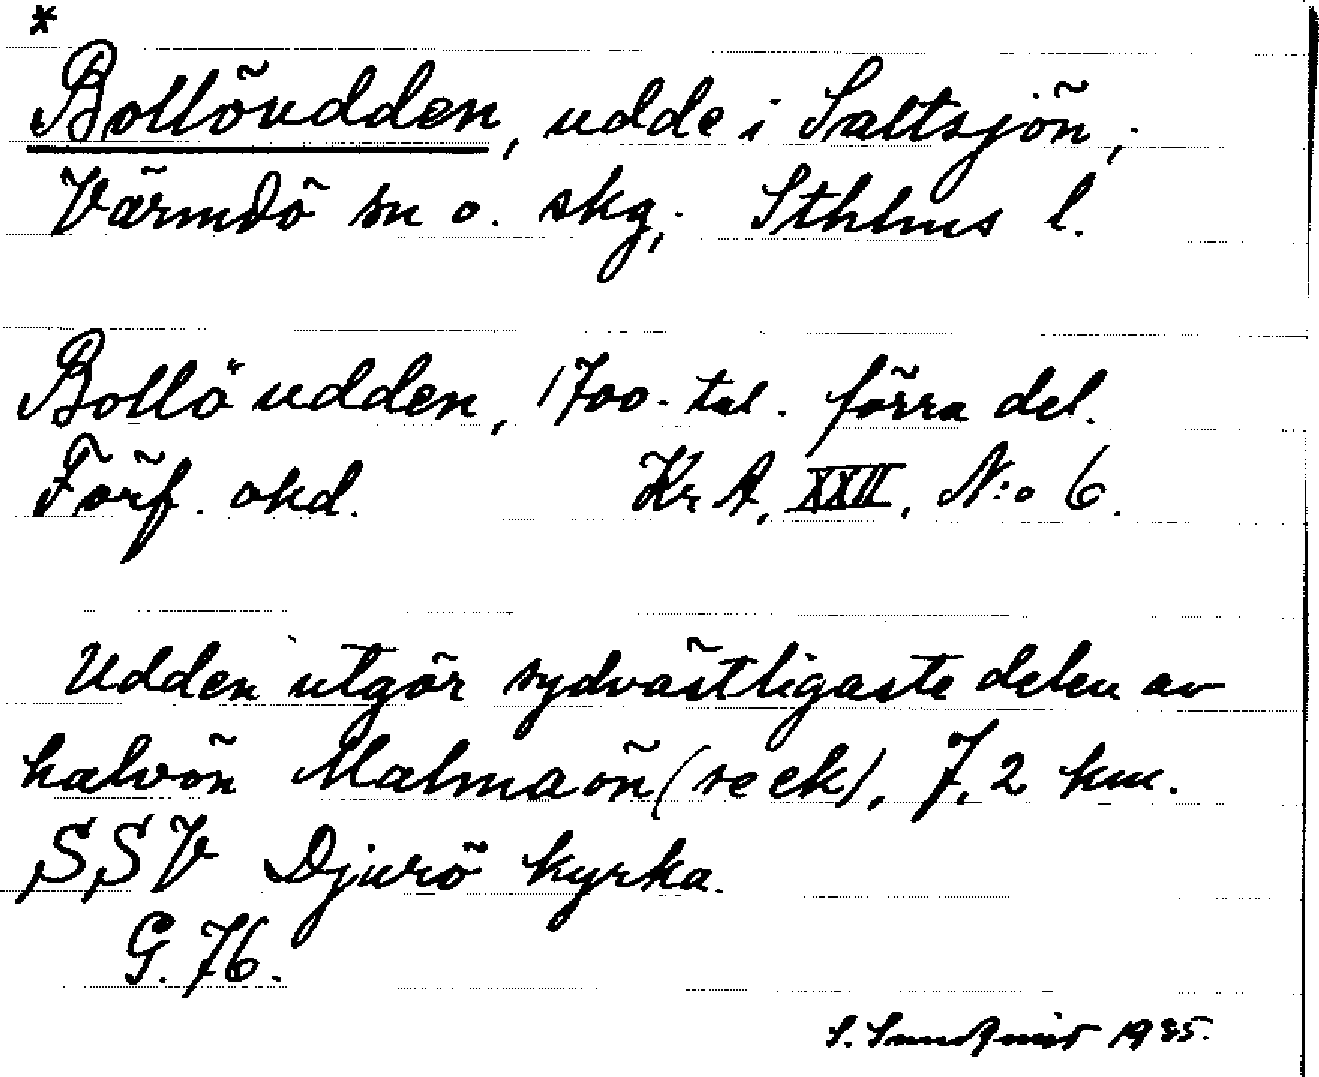 *
Bollöudden, udde i Saltsjön,
Värmdö sn o. skg, Sthlms l.
Bollöudden, 1700-tal. förra del.
Förf. okd. Kr A, XXII, N:o 6.
Udden utgör sydvästligaste delen av
halvön Malmaön (se ek), 7,2 km.
SSV Djurö kyrka.
G. 76.
S. Sundqvist 1935.